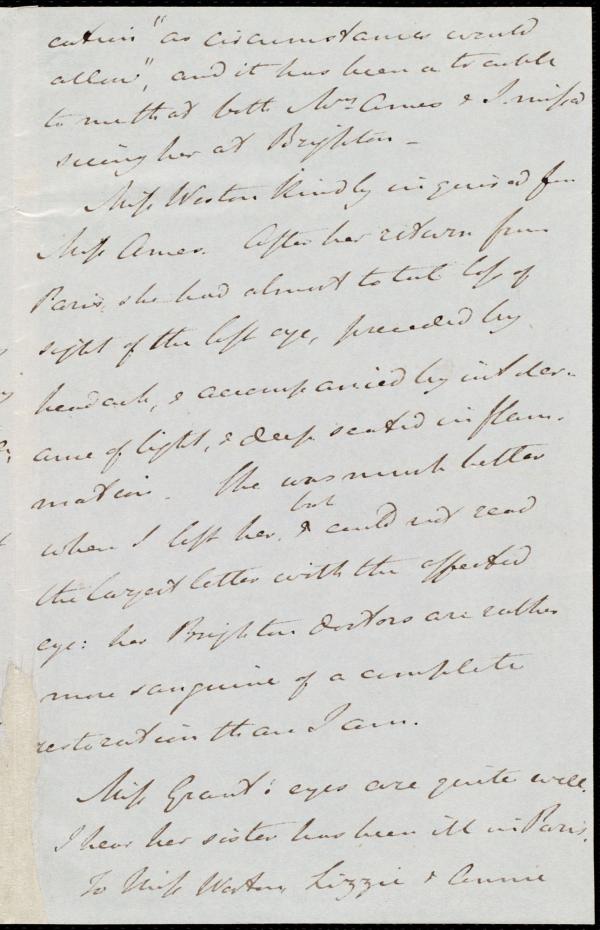 cution "as circumstances would
allow", and it has been a trouble
to me that both Mrs Ames & I miss'd
seeing her at Brighton -
Miss Weston kindly inquired for
Miss Ames. After her return from
Paris, she had almost total loss of
sight of the left eye, preceded by
headach, & accompanied by intoler-
ance of light, & deep seated inflam-
mation. She was much better
when I left her, but could not read
the largest letter with the affected
eye: her Brighton doctors are rather
more sanguine of a complete
restoration than I am.
Miss Grant's eyes are quite well.
I hear her sister has been ill in Paris.
To Miss Weston, Lizzie & Annie